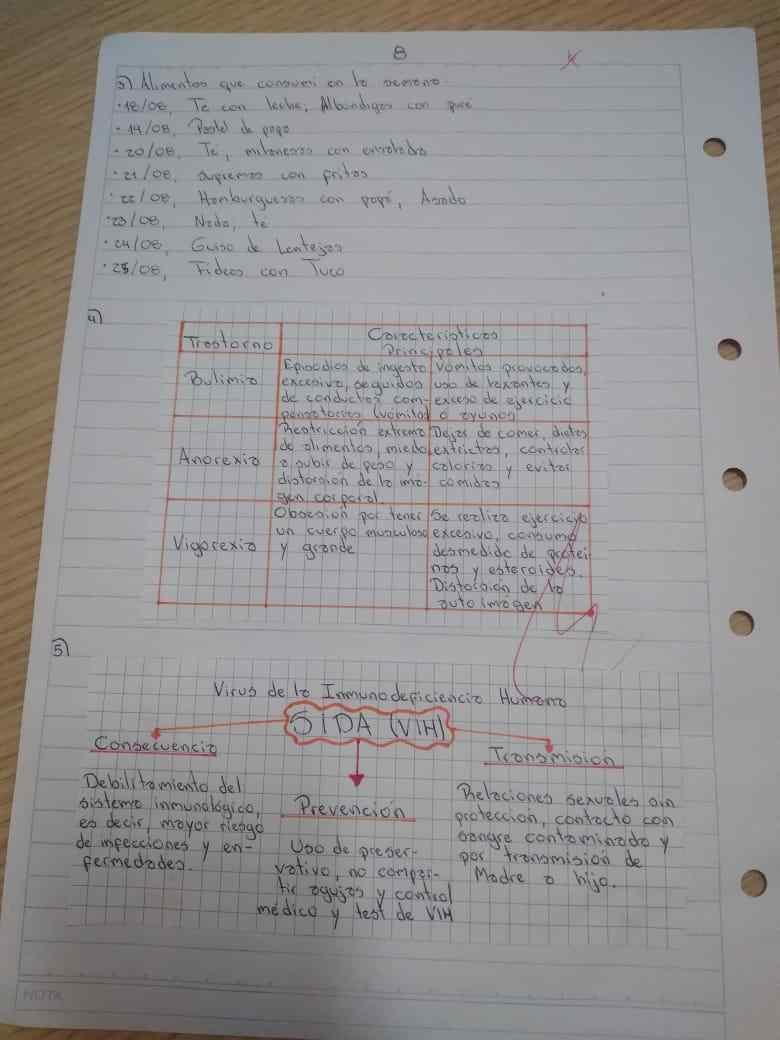 8
3) Alimentos que consumi en la semana
· 18/08, Te con leche, Albondigas con pure
· 19/08, Pastel de papa
· 20/08, Te, milanesas con ensalada
· 21/08, supremas con fritas
· 22/08, Hamburguesas con papá, Asado
· 23/08, Nada, te
· 24/08, Guiso de Lentejas
· 25/08, Fideos con Tuco
4)
Trastorno
Características
Principales
Bulimia
Episodios de ingesta
excesiva, seguidos
de conductas com-
pensatorias (vomitos)
Vómitos provocados,
uso de laxantes y
exceso de ejercicio
o ayunos
Anorexia
Restricción extrema
de alimentos, miedo
a subir de peso y
distorsión de la ima-
gen corporal.
Dejar de comer, dietas
extrictas, controlar
calorias y evitar
comidas
Vigorexia
Obsesión por tener
un cuerpo musculoso
y grande
Se realiza ejercicio
excesivo, consumo
desmedido de protei-
nas y esteroides.
Distorsión de la
auto imágen
5)
Virus de la Inmunodeficiencia Humana
SIDA (VIH)
Consecuencia
Debilitamiento del
sistema inmunológico,
es decir, mayor riesgo
de infecciones y en-
fermedades.
Prevención
Uso de preser-
vativo, no compar-
tir agujas y control
médico y test de VIH
Transmisión
Relaciones sexuales sin
protección, contacto con
sangre contaminada y
por transmisión de
Madre a hijo.
NOTA